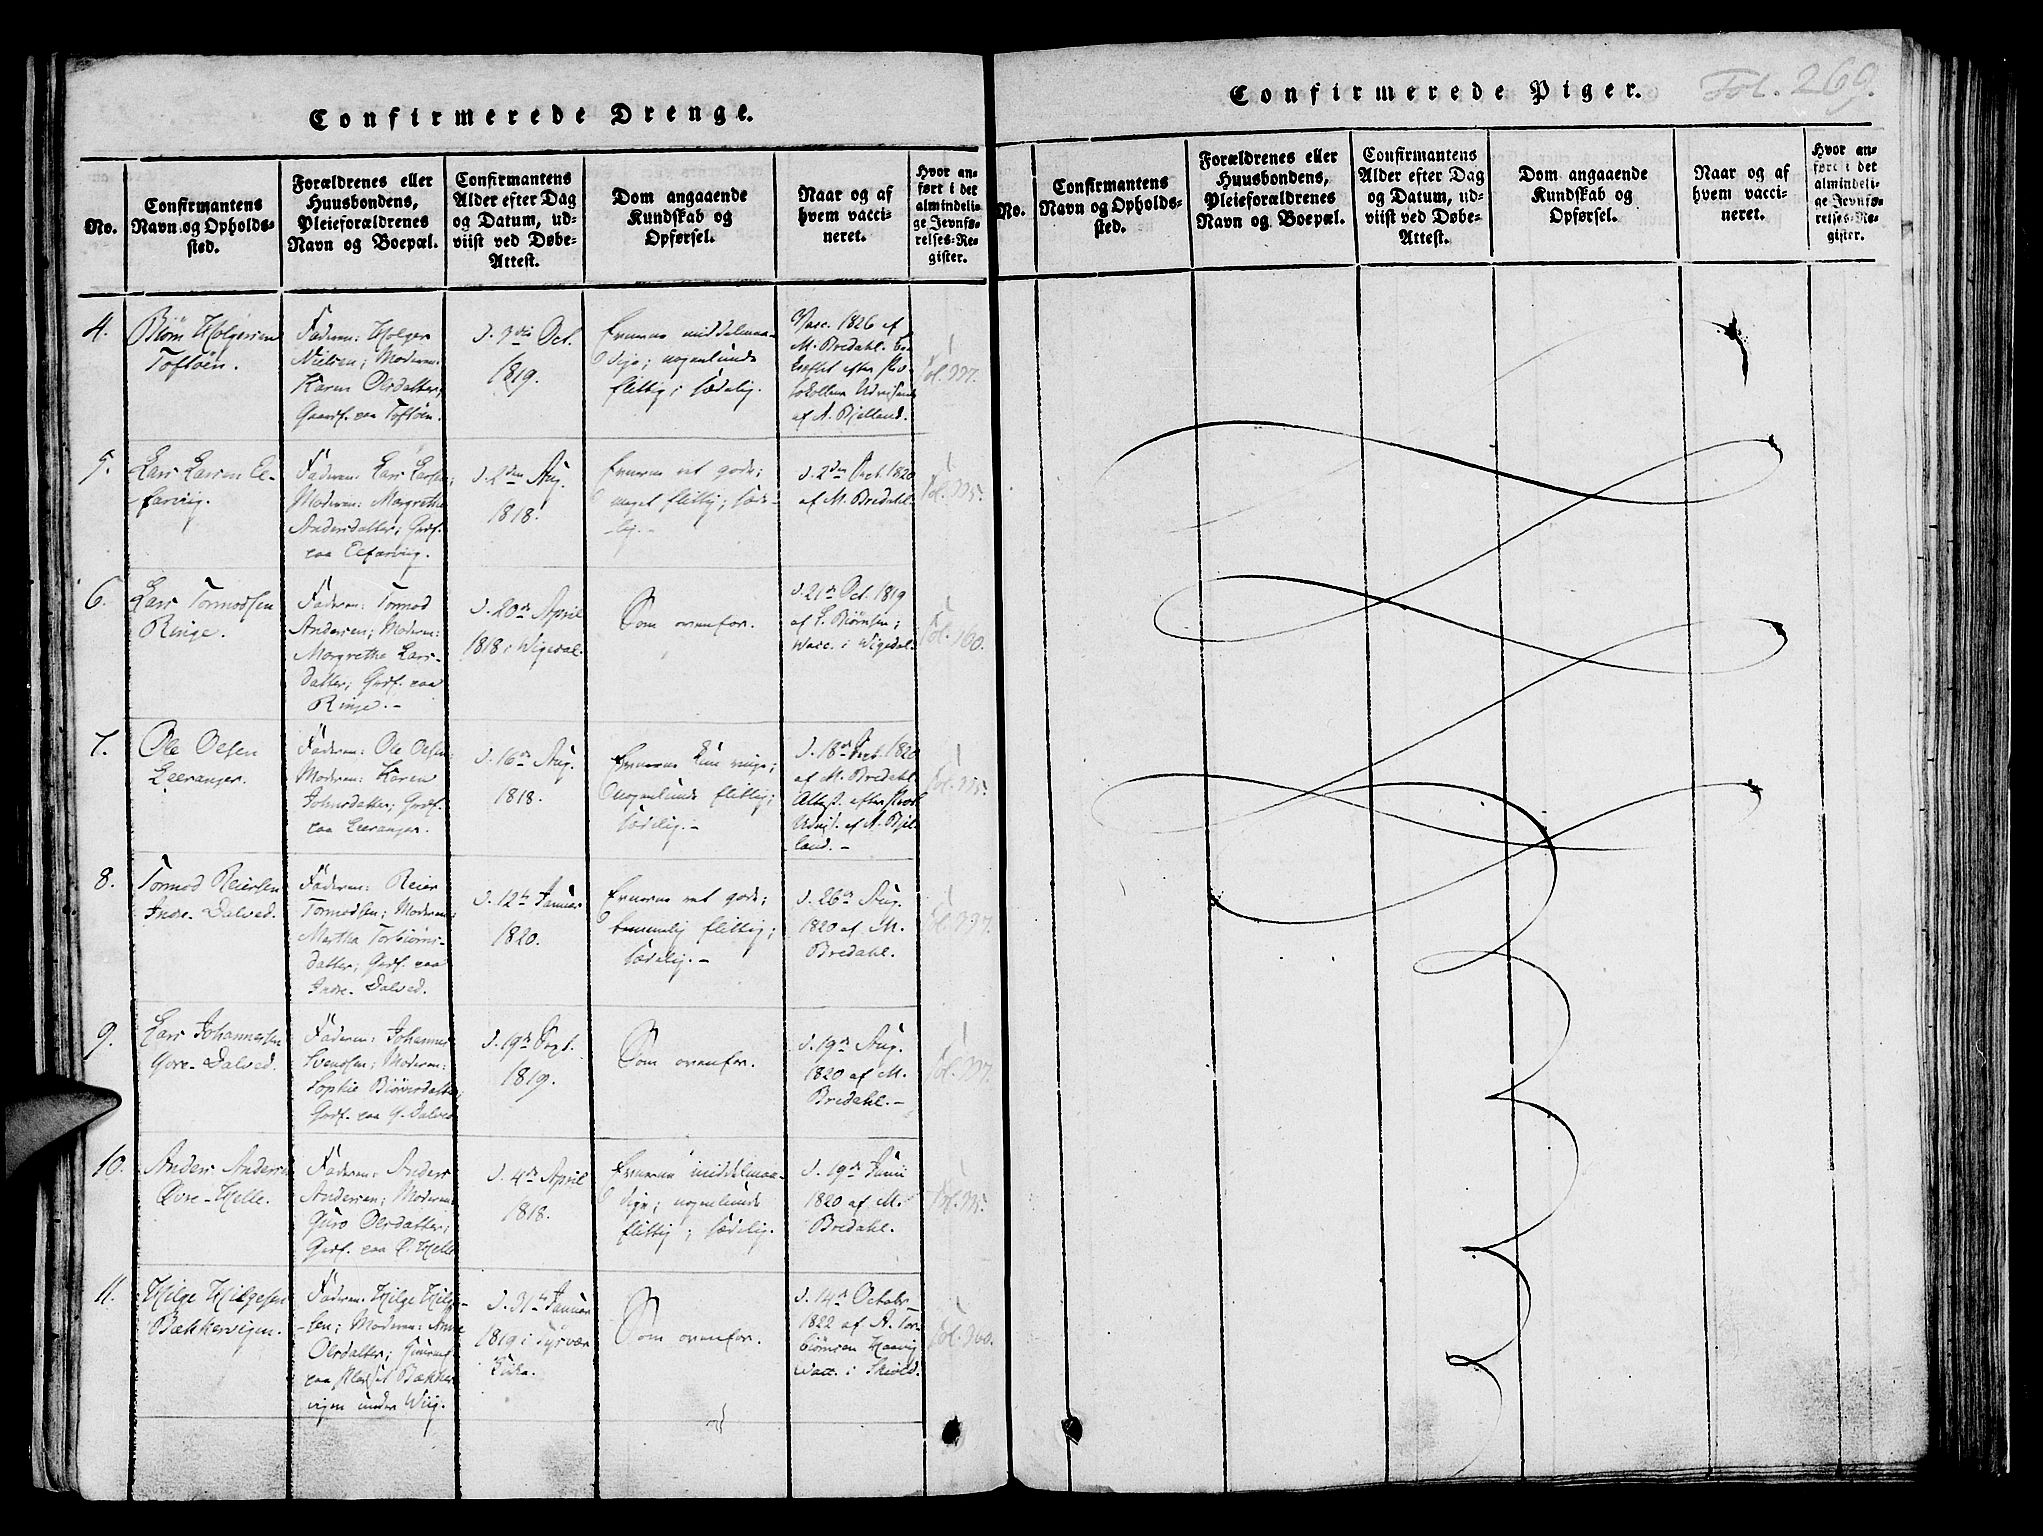 Confirmerede Drenge.
No.
Confirmantens
Navn og Opholds-
sted.
Forældrenes eller
Huusbondens,
Pleieforældrenes
Navn og Boepæl.
Confirmantens
Alder efter Dag
og Datum, ud-
viist ved Døbe-
Attest.
Dom angaaende
Kundskab og
Opførsel.
Naar og af
hvem vacci-
neret.
Hvor an-
ført i det
almindeli-
ge Jevnfø-
relses-Re-
gister.
4.
Biörn Holgersen
Toftöen.
Faderen: Holger
Nielsen; Moderen:
Karen Olsdatter;
Gaardf. paa Toftöen.
d. 3die Oct.
1819.
Evnerne middelmaa-
dige; nogenlunde
flittig; sædelig.
Vacc. 1826 af
M. Bredahl. be-
kreftet efter Pro-
tokollens Udviisende
af A. Bjelland.
Fol. 337.
5.
Lars Larsen El-
farvig.
Faderen: Lars Larsen;
Moderen: Margrethe
Andersdatter; Grdf.
paa Elfarvig.
d. 2den Aug.
1818.
Evnerne ret gode;
meget flittig; sæde-
lig.-
d. 2den Sept. 1820
af M. Bredahl.
Fol. 335.
6.
Lars Tormodsen
Ringe.
Faderen: Tormod
Andersen; Moderen:
Margrethe Lars-
datter; Grdf. paa
Ringe.-
d. 20de April
1818 i Wigedal.
Som ovenfor.
d. 21de Oct. 1819
af L. Biörnsen;
Vacc. i Wigedal.
Fol. 360.
7.
Ole Olsen
Leeranger.
Faderen: Ole Olsen
Moderen: Karen
Johnsdatter; Grdf.
paa Leeranger.
d. 16de Aug.
1818.
Evnerne kun ringe;
nogenlunde flittig;
sædelig.-
d. 18de Sept. 1820
af M. Bredahl.
Attest. efter Prot.
Udviis. af A. Bjel-
land.-
Fol. 335.
8.
Tormod Reiersen
Indre-Dalved.
Faderen: Reier
Tormodsen; Moderen:
Martha Torbiörns-
datter; Grdf. paa
Indre-Dalved.
d. 12te Januar
1820.
Evnerne ret gode;
temmelig flittig;
sædelig.-
d. 26de Aug.
1820 af M.
Bredahl.
Fol. 337.
9.
Lars Johannessen
Øvre-Dalved.
Faderen: Johannes
Svendsen; Moderen:
Sophie Biörnsdatter;
Grdf. paa Ø. Dalved
d. 19de Sept.
1819.
Som ovenfor.
d. 19de Aug.
1820 af M.
Bredahl.-
Fol. 337.
10.
Anders Andersen
Øvre-Helle.
Faderen: Anders
Andersen; Moderen:
Guro Olsdatter;
Grdf. paa Ø. Helle
d. 4de April
1818.
Evnerne middelmaa-
dige; nogenlunde
flittig; sædelig.
d. 19de Junii
1820 af M.
Bredahl.
Fol. 335.
11.
Helge Helgesen
Bækkevigen.
Faderen: Helge Helge-
sen; Moderen: Anne
Olsdatter;
paa Pladset Bække-
vigen under Wiig.
d. 31te Januar
1819 i Tysvær
Kirke.
Som ovenfor.
d. 14de Octobr.
1822 af A. Tor-
biörnsen Haavig
Vacc. i Skiold.
Fol. 360.
Confirmerede Piger.
Fol. 269.
No.
Confirmantens
Navn og Opholds-
sted.
Forældrenes eller
Huusbondens,
Pleieforældrenes
Navn og Boepæl.
Confirmantens
Alder efter Dag
og Datum, ud-
viist ved Døbe-
Attest.
Dom angaaende
Kundskab og
Opførsel.
Naar og af
hvem vacci-
neret.
Hvor an-
ført i det
almindeli-
ge Jevnfø-
relses-Re-
gister.